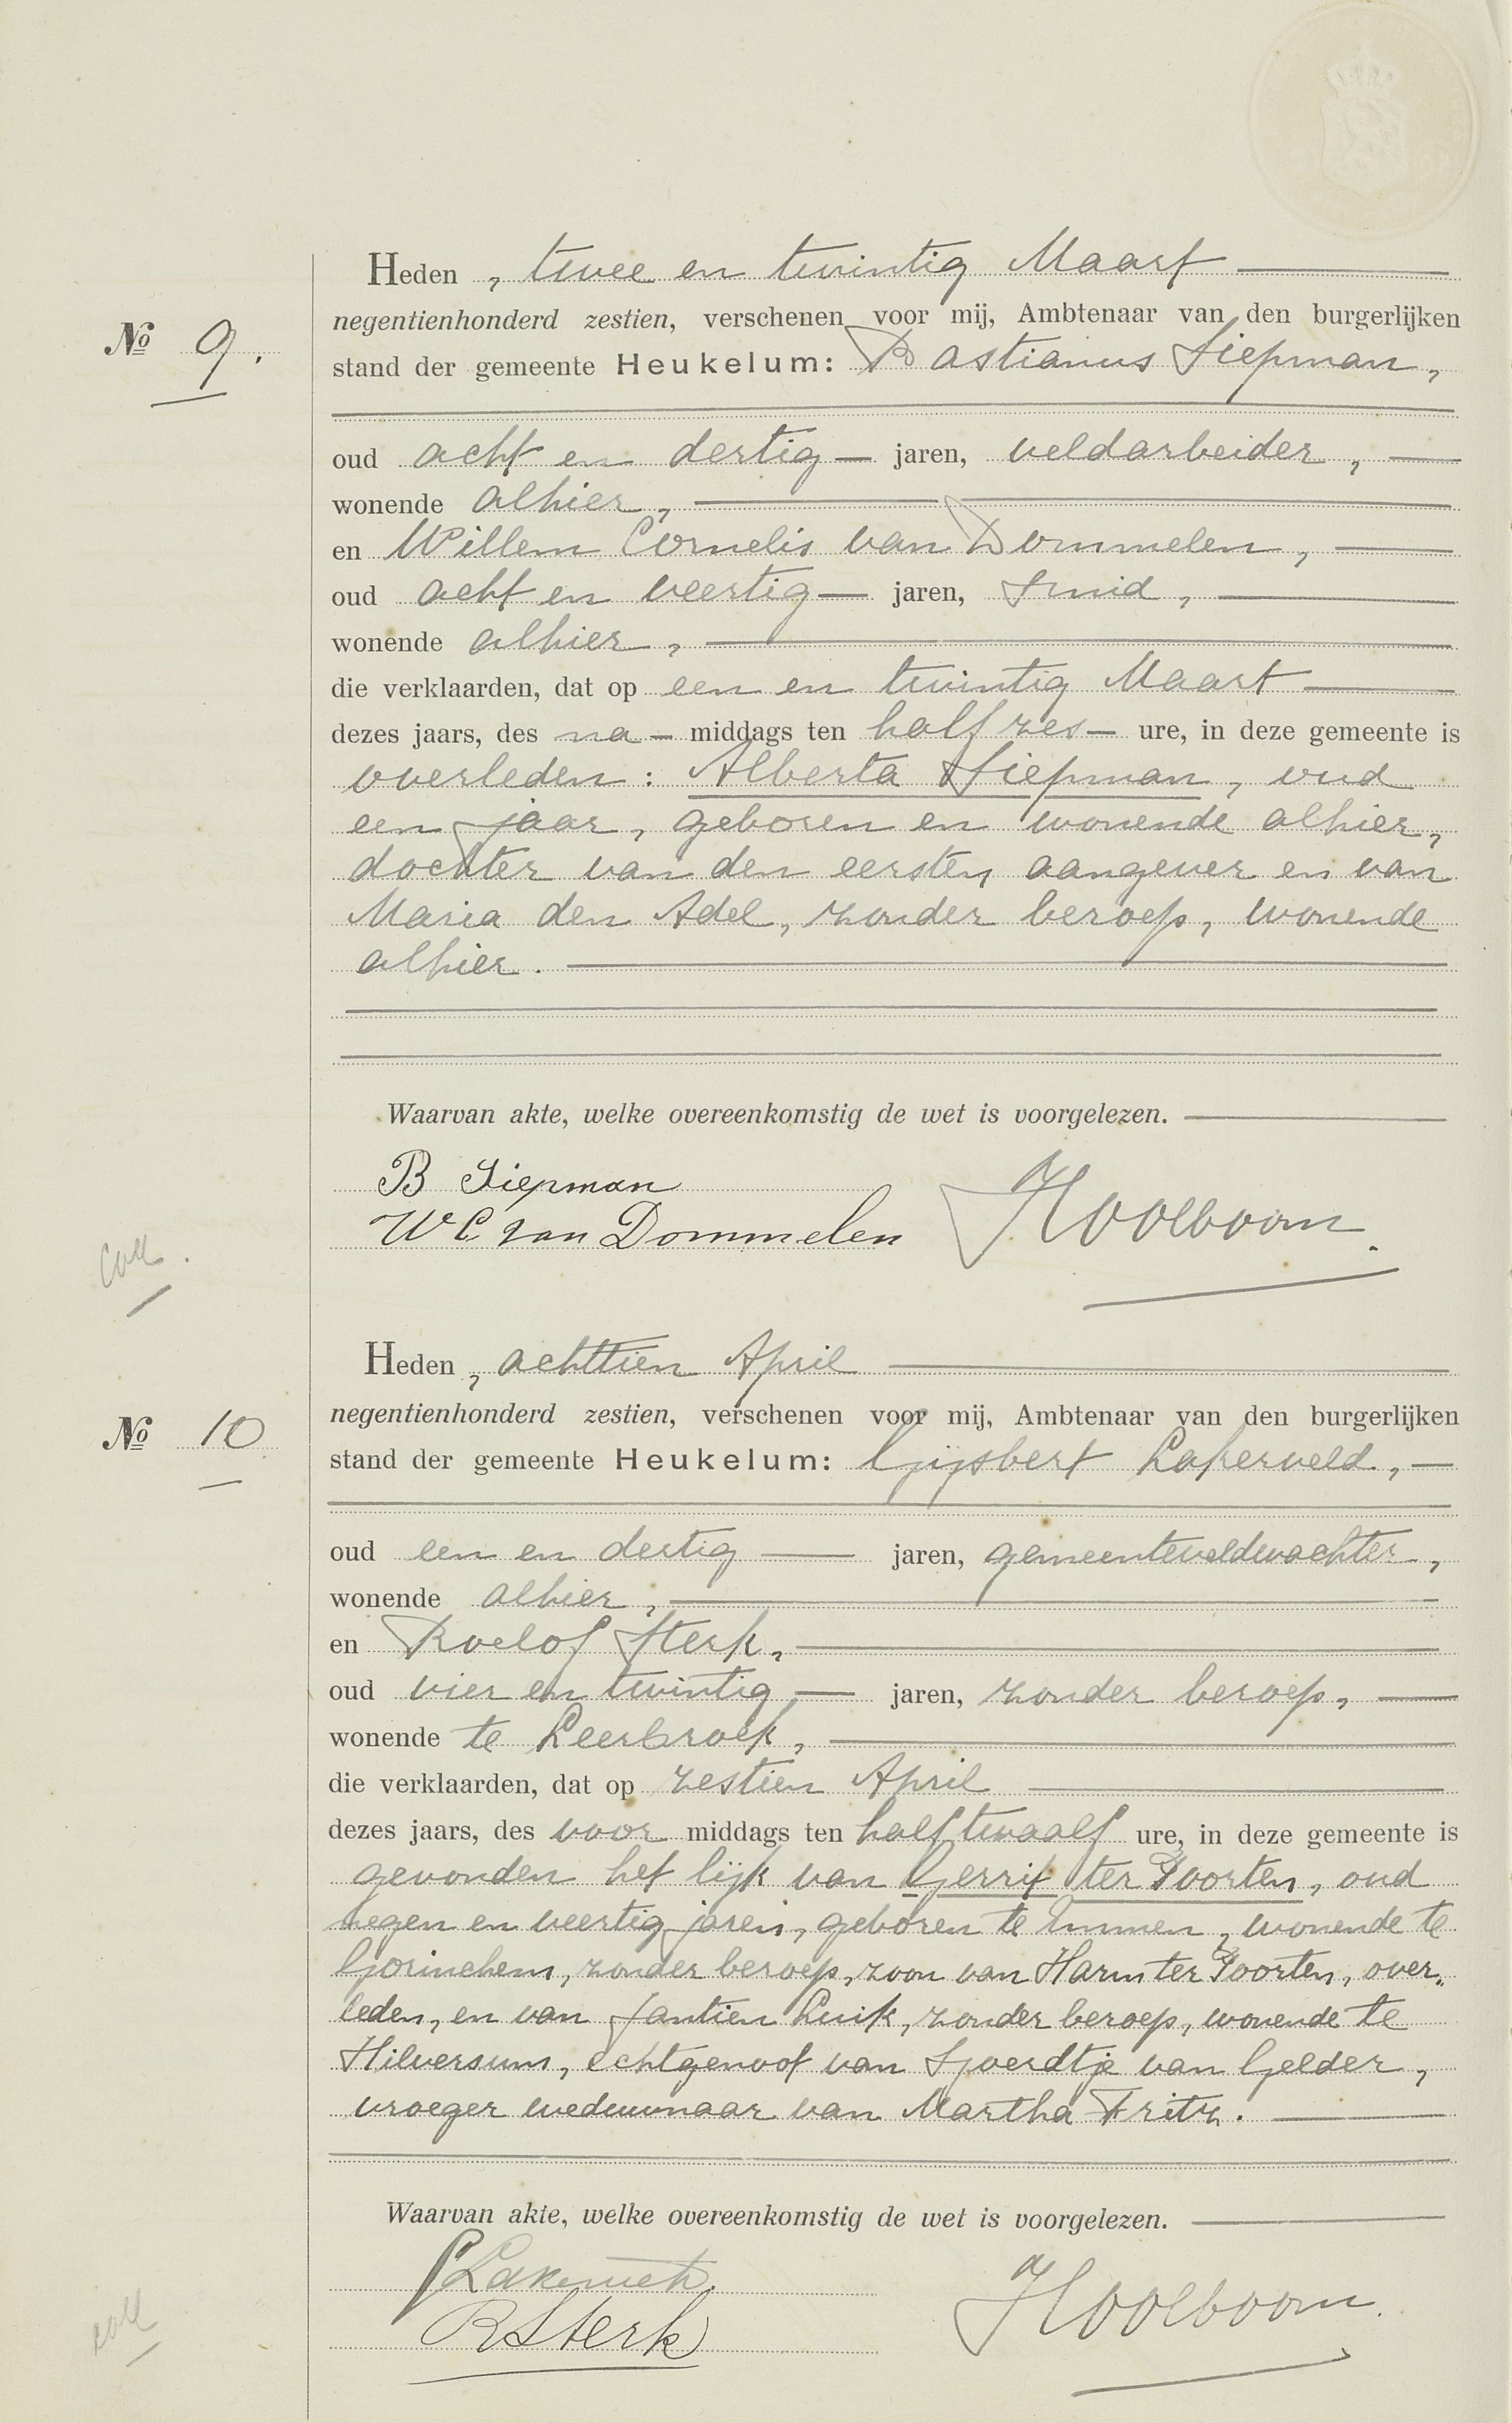 Heden, twee en twintig Maart
negentienhonderd zestien, verschenen voor mij, Ambtenaar van den burgerlijken
No 9. stand der gemeente Heukelum: Bastianus Siepman,
oud acht en dertig jaren, veldarbeider,
wonende alhier,
en Willem Cornelis van Dommelen,
oud acht en veertig jaren, smid,
wonende alhier,
die verklaarden, dat op een en twintig Maart
dezes jaars, des na- middags ten half zes ure, in deze gemeente is
overleden: Alberta Siepman, oud
een jaar, geboren en wonende alhier,
dochter van den eersten aangever en van
Maria den Adel, zonder beroep, wonende
alhier.
Waarvan akte, welke overeenkomstig de wet is voorgelezen.
B Siepman
W C van Dommelen Koolboom.
coll.
Heden, achttien April
negentienhonderd zestien, verschenen voor mij, Ambtenaar van den burgerlijken
No 10 stand der gemeente Heukelum: Gijsbert Lakerveld,
oud een en dertig jaren, gemeenteveldwachter,
wonende alhier,
en Roelof Sterk,
oud vier en twintig jaren, zonder beroep,
wonende te Leerbroek,
die verklaarden, dat op zestien April
dezes jaars, des voor middags ten half twaalf ure, in deze gemeente is
gevonden het lijk van Gerrit ter Poorten, oud
negen en veertig jaren, geboren te Emmen, wonende te
Gorinchem, zonder beroep, zoon van Harm ter Poorten, over„
leden, en van Jantien Luik, zonder beroep, wonende te
Hilversum, echtgenoot van Sjoerdtje van Gelder,
vroeger weduwnaar van Martha Fritz.
Waarvan akte, welke overeenkomstig de wet is voorgelezen.
R Sterk Koolboom.
coll